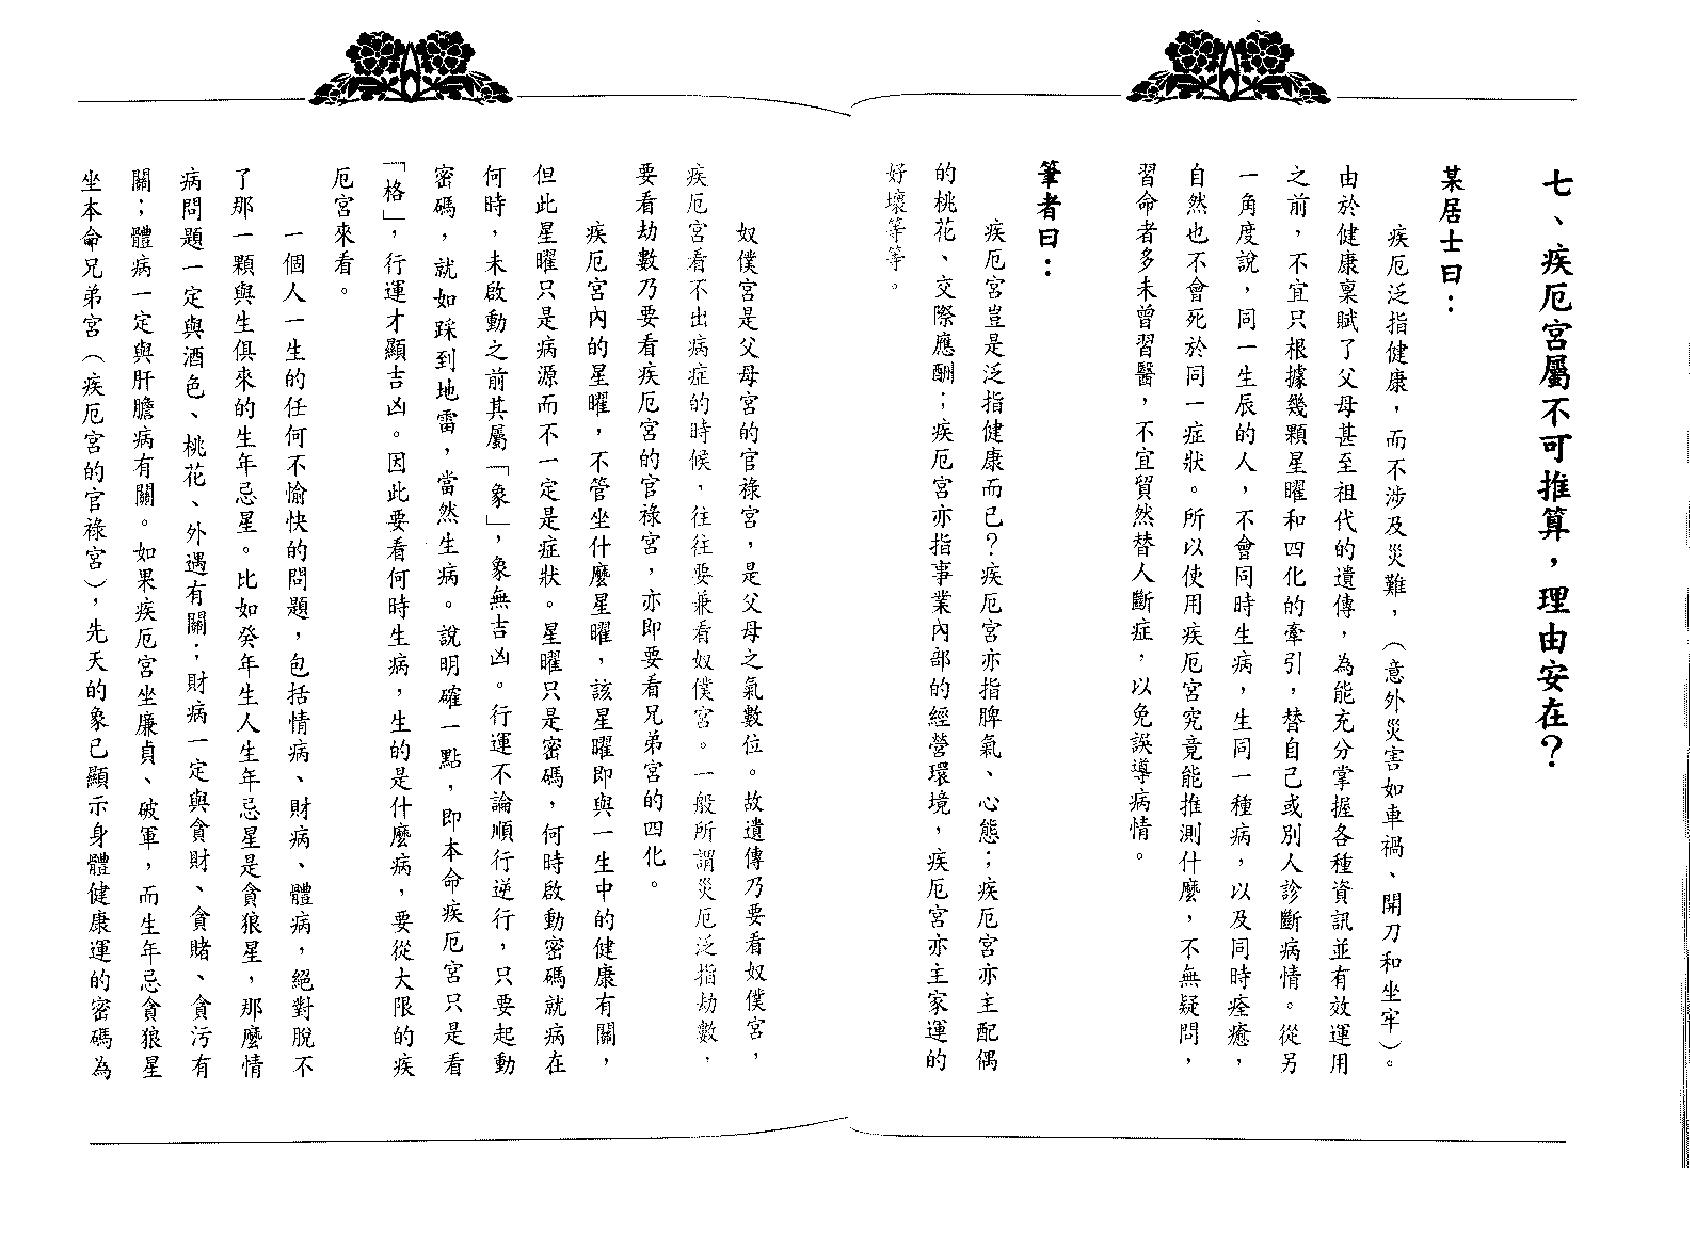 七、疾厄宮屬不可推算，理由安在？
某居士曰：
疾厄泛指健康，而不涉及災難，（意外災害如車禍、開刀和坐牢）。
由於健康稟賦了父母甚至祖代的遺傳，為能充分掌握各種資訊並有效運用
之前，不宜只根據幾顆星曜和四化的牽引，替自己或別人診斷病情。從另
一角度說，同一生辰的人，不會同時生病，生同一種病，以及同時痊癒，
自然也不會死於同一症狀。所以使用疾厄宮究竟能推測什麼，不無疑問，
習命者多未曾習醫，不宜貿然替人斷症，以免誤導病情。
筆者曰：
疾厄宮豈是泛指健康而已？疾厄宮亦指脾氣、心態；疾厄宮亦主配偶
的桃花、交際應酬；疾厄宮亦指事業內部的經營環境，疾厄宮亦主家運的
好壞等等。
奴僕宮是父母宮的官祿宮，是父母之氣數位。故遺傳乃要看奴僕宮，
疾厄宮看不出病症的時候，往往要兼看奴僕宮。一般所謂災厄泛指劫數，
要看劫數乃要看疾厄宮的官祿宮，亦即要看兄弟宮的四化。
疾厄宮內的星曜，不管坐什麼星曜，該星曜即與一生中的健康有關，
但此星曜只是病源而不一定是症狀。星曜只是密碼，何時啟動密碼就病在
何時，未啟動之前其屬「象」，象無吉凶。行運不論順行逆行，只要起動
密碼，就如踩到地雷，當然生病。說明確一點，即本命疾厄宮只是看
「格」，行運才顯吉凶。因此要看何時生病，生的是什麼病，要從大限的疾
厄宮來看。
一個人一生的任何不愉快的問題，包括情病、財病、體病，絕對脫不
了那一顆與生俱來的生年忌星。比如癸年生人生年忌星是貪狼星，那麼情
病問題一定與酒色、桃花、外遇有關；財病一定與貪財、貪賭、貪污有
關；體病一定與肝膽病有關。如果疾厄宮坐廉貞、破軍，而生年忌貪狼星
坐本命兄弟宮（疾厄宮的官祿宮），先天的象已顯示身體健康運的密碼為